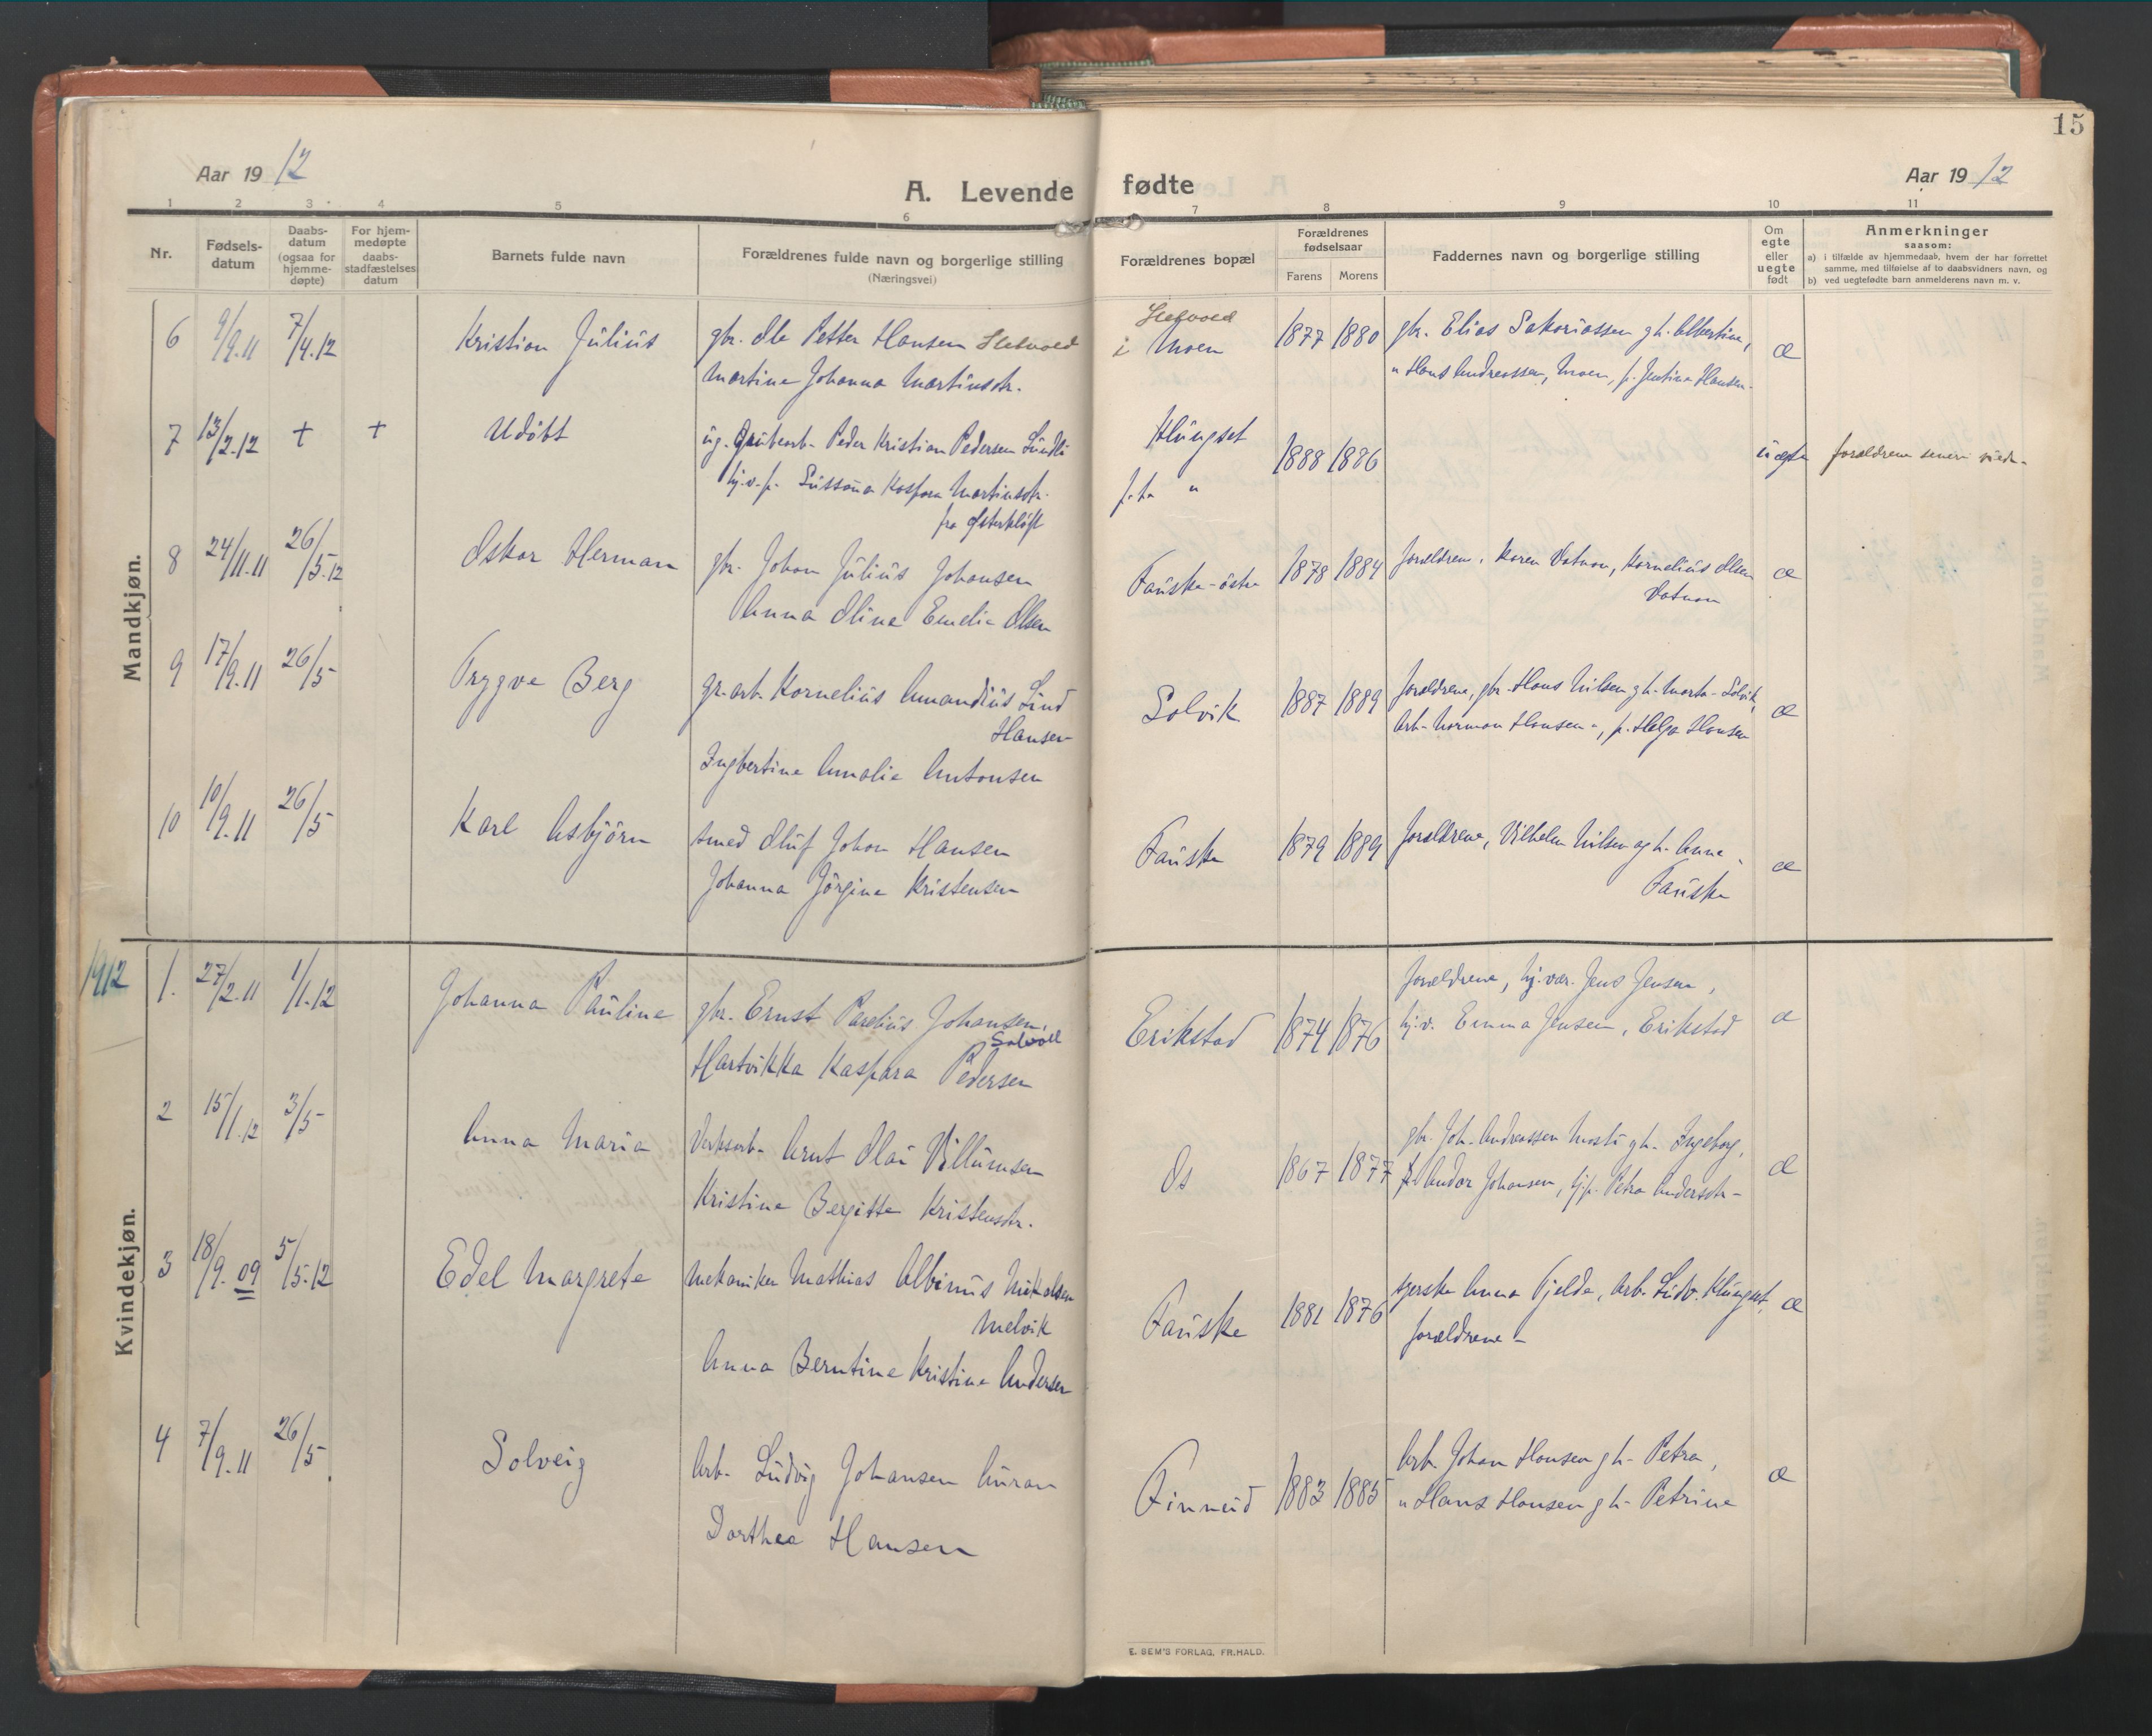 15
Aar 19 12
A. Levende fødte
Aar 19 12
1 2 3 4 5 6 7 8 9 10 11
Nr.
Fødsels-
datum
Daabs-
datum
(ogsaa for
hjemme-
døpte)
For hjem-
medøpte
daabs-
stadfæstelses
datum
Barnets fulde navn
Forældrenes fulde navn og borgerlige stilling
(Næringsvei)
Forældrenes bopæl
Forældrenes
fødselsaar
Farens Morens
Faddernes navn og borgerlige stilling
Om
egte
eller
uegte
født
Anmerkninger
saasom:
a) i tilfælde av hjemmedaab, hvem der har forrettet
samme, med tilføielse af to daabsvidners navn, og
b) ved uegtefødte barn anmelderens navn m. v.
Mandkjøn.
6 9/9.11 7/4.12 Kristian Julius gbr. Ole Petter Hansen Sletvold
Martine Johanna Martinsdtr.
Sletvold
i Moen 1877 1880 gbr. Elias Sakariassen g h. Albertine,
" Hans Andreassen, Moen, p. Jentine Hansen- æ
7 13/2.12 + + Udöbt ug. Grubearb- Peder Kristian Pedersen Lundli
hj.v.p. Sussana Kaspara Martinsdtr.
fra Österkløft
Klungset
p.t. " 1888 1886 uægte forældrene senere viede-
8 24/11.11 26/5.12 Oskar Herman gbr. Johan Julius Johansen
Anna Oline Emelie Olsen
Fauske-östre 1878 1884 forældrene, Karen Vatnan, Kornelius Olsen
Vatnan æ
9 17/9.11 26/5 Trygve Berg gr.arb. Kornelius Amandius Lind
Hansen
Ingbertine Amalie Antonsen
Solvik 1887 1889 forældrene, gbr. Hans Nilsen g h. Marta- Solvik,
Arb- Norman Hansen-, p. Helga Hansen æ
10 10/9.11 26/5 Karl Asbjörn smed Oluf Johan Hansen
Johanna Jörgine Kristensen
Fauske 1879 1889 forældrene, Vilhelm Nilsen og h. Anna
Fauske æ
Kvindekjøn.
1912
1. 27/2.11 1/1.12 Johanna Pauline gbr. Ernst Parelius Johansen,
Solvoll
Hartvikka Kaspara Pedersen
Erikstad 1874 1876 forældrene, hj.vær. Jens Jensen,
hj.v. Emma Jensen, Erikstad æ
2 15/1.12 3/5 Anna Maria Verksarb- Arnt Olai Villumsen
Kristine Bergitte Kristensdtr.
Os 1867 1877 gbr. Joh. Andreassen Mosti g h- Ingeborg,
Andor Johansen, hj.p. Petra Andersdtr- æ
3 18/9.09 5/5.12 Edel Margrete Mekaniker Mathias Albinus Mikalsen
Melvik
Anna Berntine Kristine Andersen
Fauske 1881 1876 syerske Anna Fjelde, Arb. Ludv. Klungset,
forældrene- æ
4 7/9.11 26/5. Solveig Arb- Ludvig Johansen Auran
Dorthea Hansen
Finneid 1883 1885 Arb. Johan Hansen g h- Petra,
" Hans Hansen g h- Petrine æ
E. SEM'S FORLAG, FR.HALD.